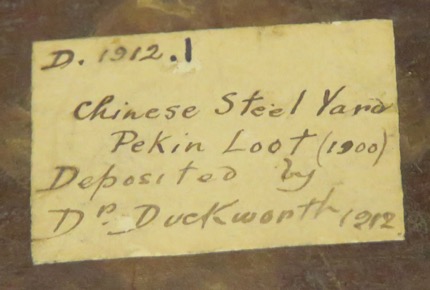 D. 1912.1
Chinese Steel Yard
Pekin Loot (1900)
Deposited by
Dr. Duckworth 1912